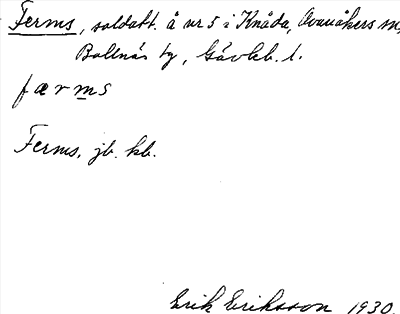 Ferms, soldatt. å nr 5 i Knåda, Ovanåkers sn,
Bollnäs tg, Gävleb. l.
færms
Ferms, jb. kb.
Erik Eriksson 1930.